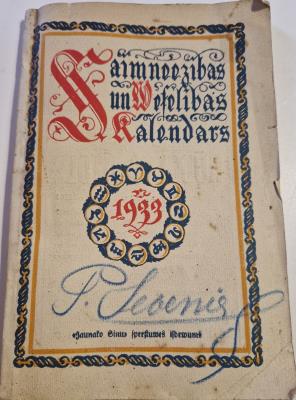 Saimneezibas
un Weselibas
Kalendars
1933
P. Seveniņ
"Jaunako Sinu" speestuwes isdewums